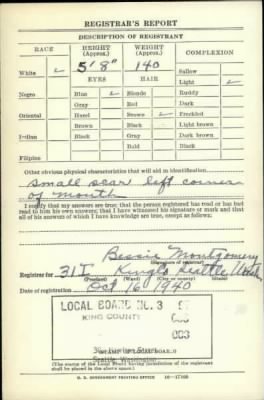 REGISTRAR'S REPORT
DESCRIPTION OF REGISTRANT
RACE
HEIGHT
(Approx.)
WEIGHT
(Approx.)
COMPLEXION
5' 8"
140
Sallow
White ✓
Light ✓
EYES
HAIR
Negro
Blue ✓
Blonde
Ruddy
Gray
Red
Dark
Oriental
Hazel
Brown ✓
Freckled
Brown
Black
Light brown
Indian
Black
Gray
Dark brown
Bald
Black
Filipino
Other obvious physical characteristics that will aid in identification
small scar left corner
of mouth
I certify that my answers are true; that the person registered has read or has had
read to him his own answers; that I have witnessed his signature or mark and that
all of his answers of which I have knowledge are true, except as follows:
Bessie Montgomery
(Signature of registrar)
Registrar for 31 I King Seattle Wash
(Precinct) (Ward) (City or county) (State)
Date of registration Oct 16 1940
LOCAL BOARD NO. 3
KING COUNTY
Seattle Washington
(STAMP OF LOCAL BOARD)
(The stamp of the Local Board having jurisdiction of the registrant
shall be placed in the above space.)
U. S. GOVERNMENT PRINTING OFFICE 16—17105